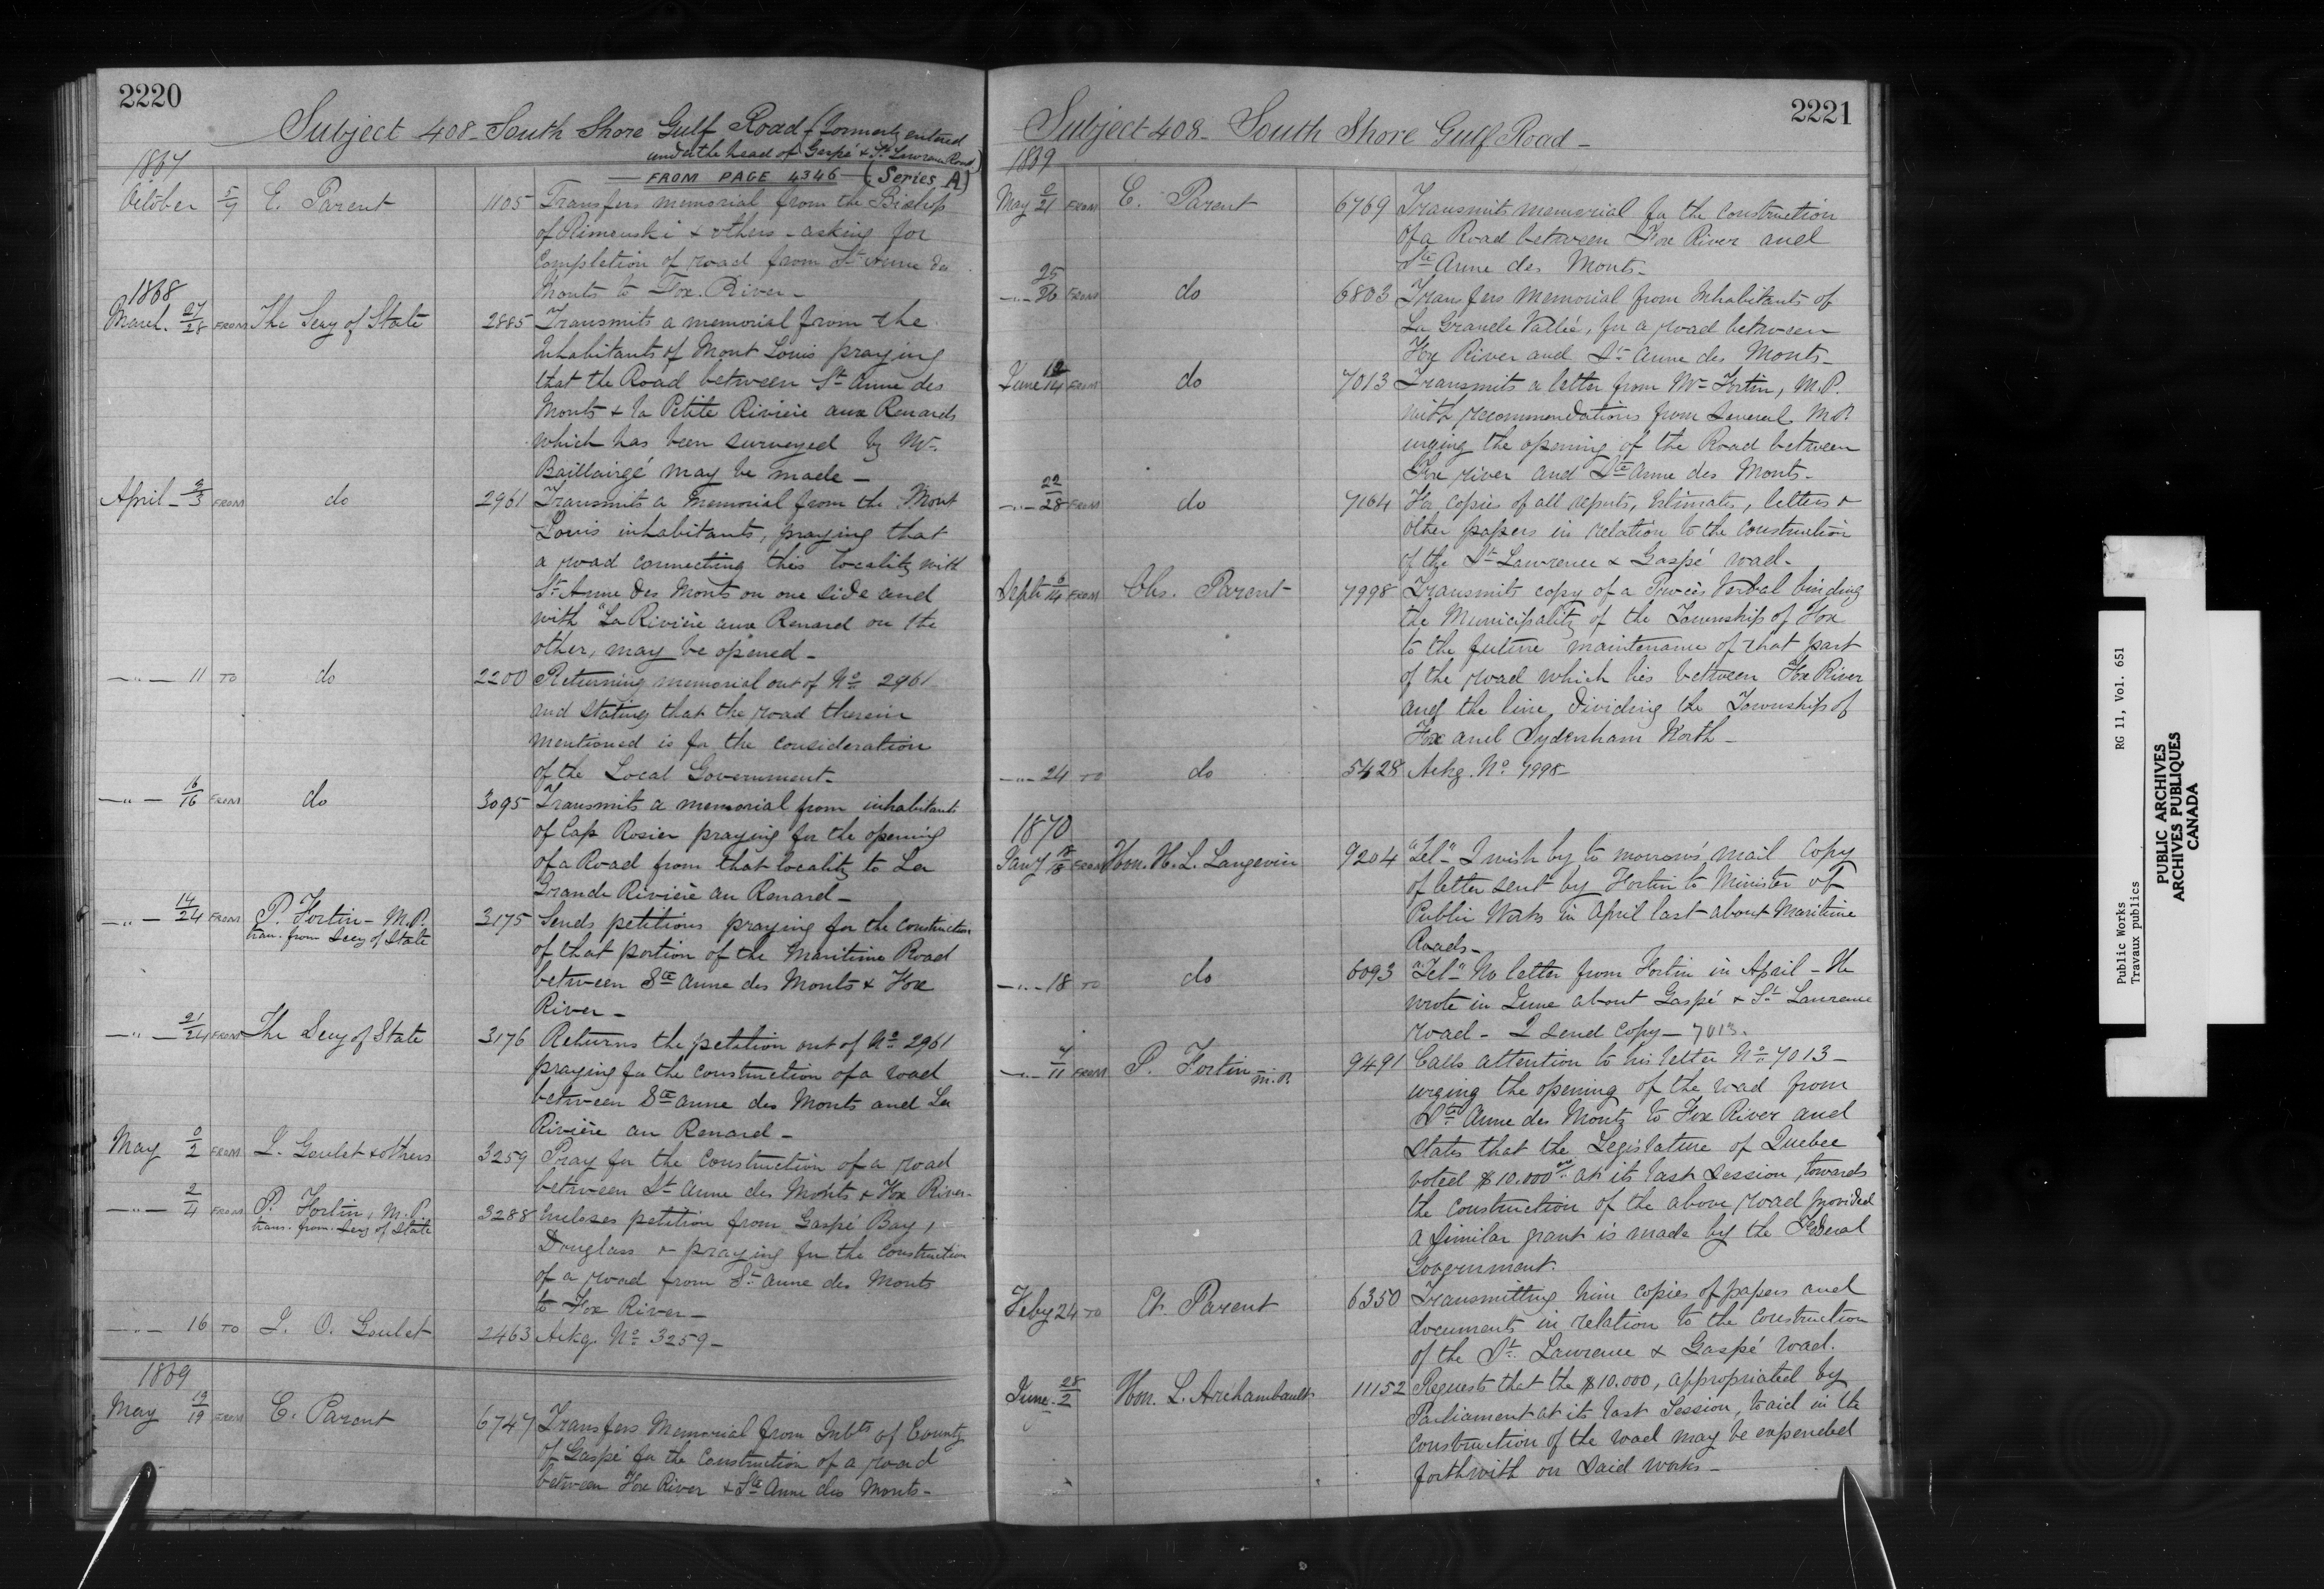 2220
Subject 408 - South Shore Gulf Road (formerly entered
under the head of Gaspé & St. Lawrence Road)
FROM PAGE 4346 (Series A)
1867
October 5/7 E. Parent 1105 Transfers memorial from the Bishop
of Rimouski & others - asking for
completion of road from St Anne des
Monts to Fox River -
1868
March 27/28 FROM The Secy of State 2885 Transmits a memorial from the
Inhabitants of Mont Louis praying
that the Road between St Anne des
Monts & la Petite Rivière aux Renards
which has been surveyed by Mr.
Baillairgé may be made -
April - 2/3 FROM do 2961 Transmits a Memorial from the Mont
Louis inhabitants, praying that
a road connecting this locality with
St Anne des Monts on one side and
with "La Rivière aux Renard on the
other, may be opened -
-"- 11 TO do 2200 Returning memorial out of No 2961
and stating that the road therein
mentioned is for the consideration
of the Local Government -
-"- 16/16 FROM do 3095 Transmits a memorial from inhabitants
of Cap Rosier praying for the opening
of a Road from that locality to La
Grande Rivière au Renard -
-"- 14/24 FROM P. Fortin - M.P. 3175 Sends petitions praying for the construction
tran. from Secy of State
of that portion of the Maritime Road
between Ste Anne des Monts & Fox
River -
-"- 21/24 FROM The Secy of State 3176 Returns the petition out of No 2961
praying for the construction of a road
between Ste Anne des Monts and La
Rivière au Renard -
May 0/2 FROM L. Goulet & others 3259 Pray for the construction of a road
between St Anne des Monts & Fox River -
-"- 2/4 FROM P. Fortin, M.P. 3288 Incloses petition from Gaspé Bay,
tran. from Secy of State
Douglass & praying for the construction
of a road from St Anne des Monts
to Fox River -
-"- 16 TO L. O. Goulet 2463 Ackg. No 3259 -
1869
May 12/19 FROM E. Parent 6747 Transfers Memorial from Inbts of County
of Gaspé for the Construction of a road
between Fox River & Ste Anne des Monts -
2221
Subject 408 - South Shore Gulf Road -
1869
May 0/21 FROM E. Parent 6769 Transmits memorial for the construction
of a Road between Fox River and
Ste Anne des Monts -
-"- 25/26 FROM do 6803 Transfers Memorial from Inhabitants of
La Grande Vallée, for a road between
Fox River and St Anne des Monts -
June 12/14 FROM do 7013 Transmits a letter from Mr Fortin, M.P.
with recommendations from several M.P.
urging the opening of the Road between
Fox river and Ste Anne des Monts -
-"- 22/28 FROM do 7164 For copies of all reports, Estimates, letters &
other papers in relation to the construction
of the St Lawrence & Gaspé road -
Septr 6/14 FROM Chs. Parent 7998 Transmits copy of a Procès Verbal binding
the Municipality of the Township of Fox
to the future maintenance of that part
of the road which lies between Fox River
and the line dividing the Township of
Fox and Sydenham North -
-"- 24 TO do 5428 Ackg. No 7998 -
1870
Jany 18/18 FROM Hon. H. L. Langevin 9204 "Tel" - I wish by to morrow's mail copy
of letter sent by Fortin to Minister of
Public Works in April last about Maritime
Roads -
-"- 18 TO do 6093 "Tel" No letter from Fortin in April - He
wrote in June about Gaspé & St Lawrence
road - I send copy - 7013.
-"- 7/11 FROM P. Fortin M.P. 9491 Calls attention to his letter No 7013 -
urging the opening of the road from
Ste Anne des Monts to Fox River and
States that the Legislature of Quebec
voted $10.000.00 at its last Session, towards
the construction of the above road provided
a similar grant is made by the Federal
Government.
Feby 24 TO Ch. Parent 6350 Transmitting him copies of papers and
documents in relation to the construction
of the St. Lawrence & Gaspé road.
June 28/2 Hon. L. Archambault 11152 Requests that the $10.000, appropriated by
Parliament at its last Session, to aid in the
construction of the road may be expended
forthwith on said works -
Public Works RG 11, Vol. 651
Travaux publics
PUBLIC ARCHIVES
ARCHIVES PUBLIQUES
CANADA